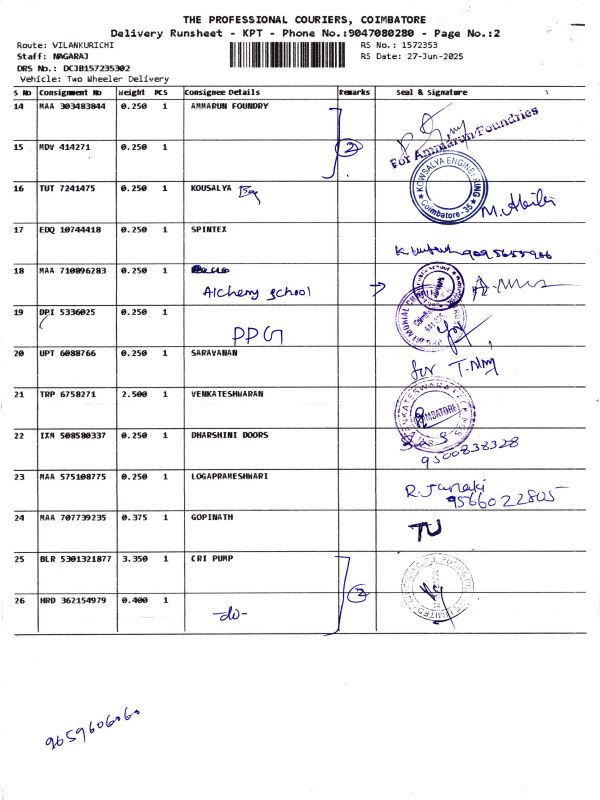 THE PROFESSIONAL COURIERS, COIMBATORE
Delivery Runsheet - KPT - Phone No.:9047080280 - Page No.:2
Route: VILANKURICHI
Staff: NAGARAJ
DRS No.: DCJB157235302
Vehicle: Two Wheeler Delivery
RS No.: 1572353
RS Date: 27-Jun-2025
S No Consignment No Weight PCS Consignee Details Remarks Seal & Signature
14 MAA 303483844 0.250 1 AMMARUN FOUNDRY
For Ammarun Foundries
15 MDV 414271 0.250 1
2
16 TUT 7241475 0.250 1 KOUSALYA Eng
KOWSALYA ENGINEERING
Coimbatore - 35
M. Abila
17 EDQ 10744418 0.250 1 SPINTEX
18 MAA 710896283 0.250 1
Alchemy School
19 DPI 5336025 0.250 1
PPG
20 UPT 6088766 0.250 1 SARAVANAN
for T. Nmy
21 TRP 6758271 2.500 1 VENKATESHWARAN
COIMBATORE
22 IXM 508580337 0.250 1 DHARSHINI DOORS
9500838328
23 MAA 575108775 0.250 1 LOGAPRAMESHWARI
R. Janaki
9566022805
24 MAA 707739235 0.375 1 GOPINATH
TU
25 BLR 5301321877 3.350 1 CRI PUMP
2
26 HRD 362154979 0.400 1
-do-
9659606060